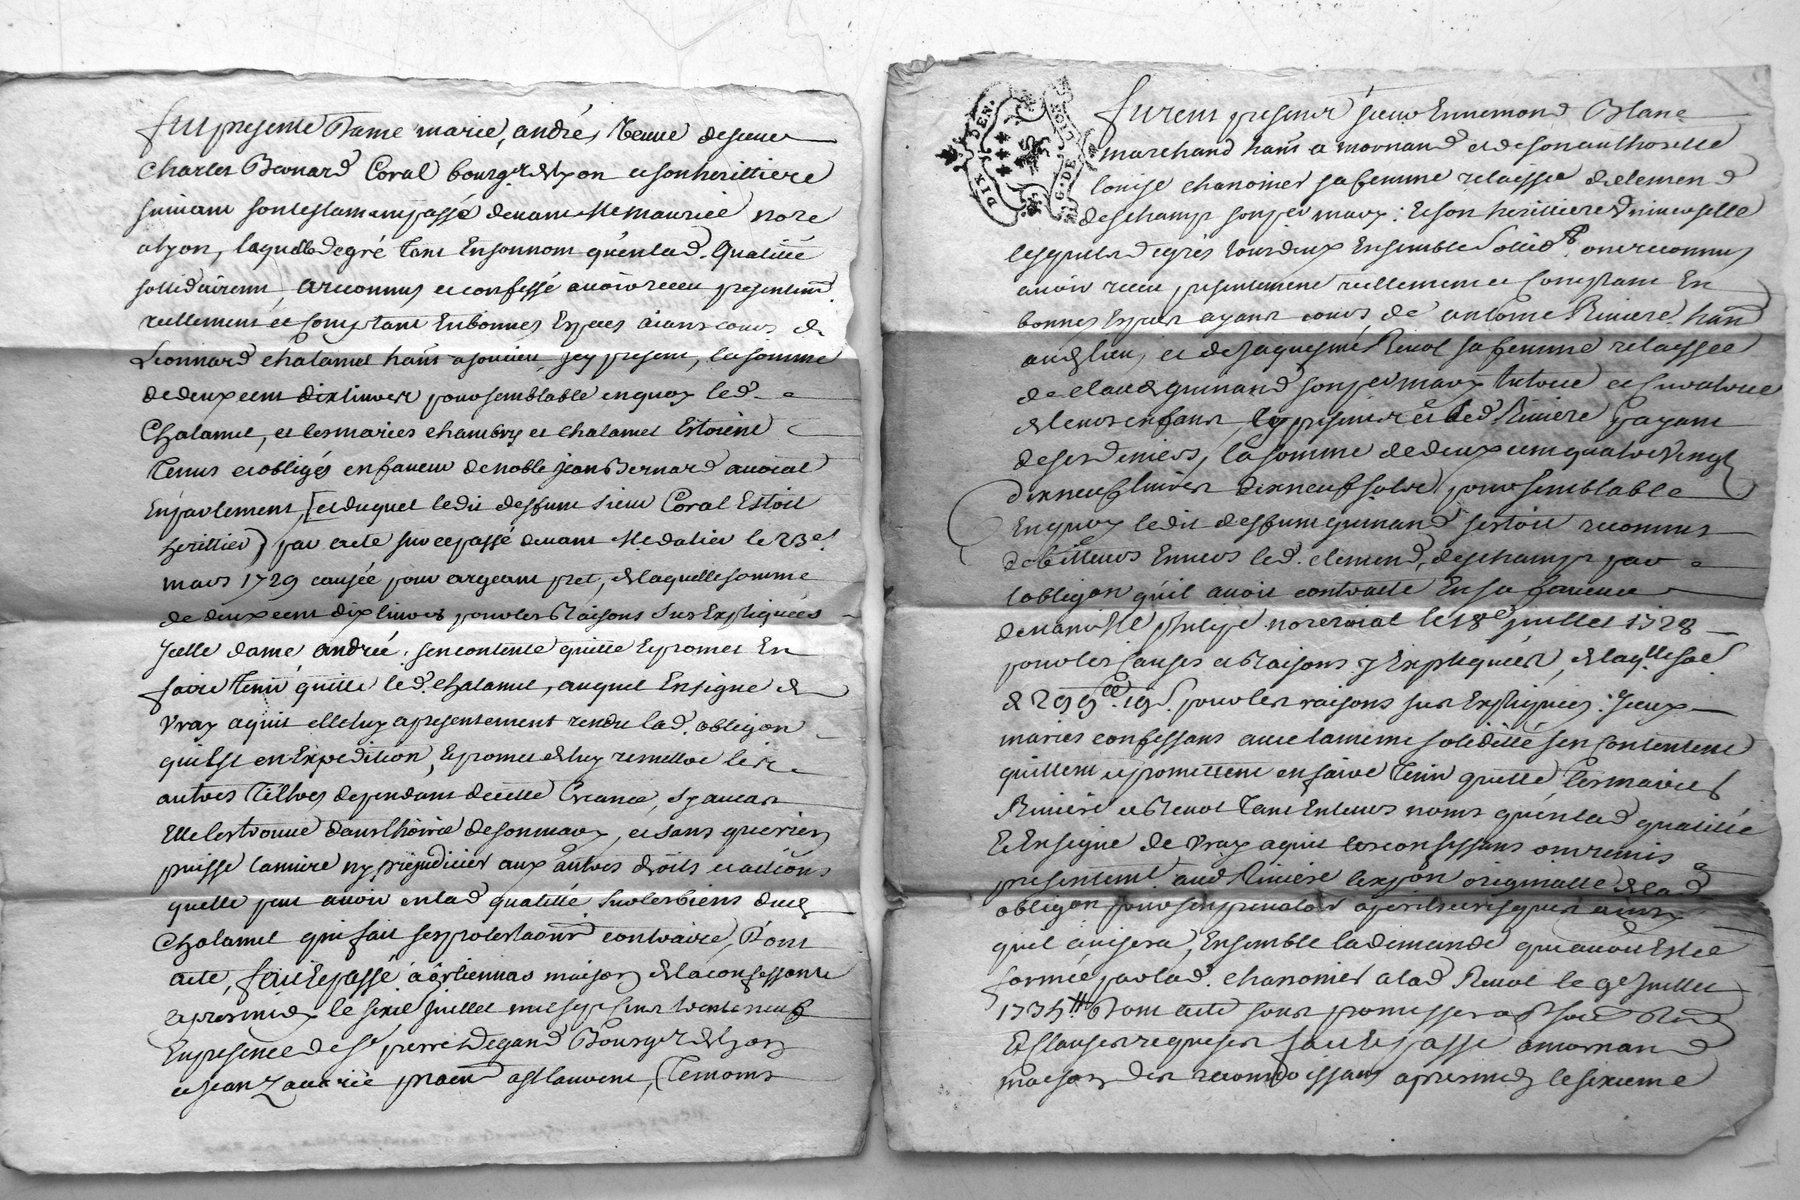 fut presente Dame marie, andré, veuve de sieur
Charles Bernard Coral bourg.r de lyon et son herittiere
suivant son testament passé devant Me mauriee no.re
a lyon, laquelle de gré tant en son nom qu'en lad. Qualitté
sollidairemt, a reconnus et confessé avoir receu presentemt.
reellement et comptant en bonnes Especes aiant cours de
Leonnard chalamel hant a soucieu, jcy present, la somme
de deux cent dix livres pour semblable en quoy led.
Chalamel, et les maries chambry et chalamel Estoient
tenus et obligés en faveur de noble jean Bernard avocat
En parlement, [et duquel ledit deffunt sieur Coral Estoit
herittier) par acte sur ce passé devant Me dalier le 23e
mars 1729 causée pour argeant pret, de laquelle somme
de deux cent dix livres pour les Raisons sus Expliquées
jcelle dame andrée, sen contente quitte Et promet En
faire tenir quitte led. chalamel, auquel En signe de
vray aquit elle luy a presentement rendu lad. obligon
qui Est en Expedition, Et promet de luy remettre les
autres tiltres dependant de cette Creance, sy aucun
Elle les trouve dans lhoirie de son mary, et sans que rien
puisse lan nuire ny préjudicier aux autres droits et actions
quelle peut avoir en lad qualitté sur les biens dud
Chalamel qui fait ses protestaons contraires, Dont
acte, fait Et passé a orliennas maison de la confessante
apres midy le six.e juillet mil sept cens trente neuf
En presence de sr pierre Degand Bourg.r de lyon
et jean Zacarie prat.n a st laurent, temoins
furent presents sieur Ennemond Blanc
marchand hant a mornand et de son authoritté
louise chanonier sa femme relaissée de clemend
deschamp son per mary: Et son herittiere Universelle
lesquels de grés tous deux Ensemble sollid.t ont reconnus
avoir receu presentement reellement et comptant En
bonnes Especes ayant cours de antoine Riviere hant
aud lieu, et de jaquesmé Revol sa femme relaissée
de claude guinand son per mary tutrice et curatrice
de leurs enfans, jcy presents et led Riviere payant
de ses deniers, la somme de deux cent quatre vingt
dix neuf livres dix neuf sols pour semblable
En quoy ledit deffunt guinand s'estoit reconnus
debitteurs Envers led. clemend, deschamps par
l'obligon qu'il avoit contracté En sa faveur
devant Me phelipe no.re royal le 18e juillet 1728
pour les causes et Raisons y Expliquées, de laq.lle so.e
de 299ll. 19s. pour les raisons sus Expliquées: jceux
maries confessans avec la meme solidité sen contentent
quittent et promettent en faire tenir quitte les maries
Riviere et Revol tant En leurs noms qu'en lad qualitté
Et En signe de vray aquit les confessans ont remis
presentemt. aud Riviere lexpon originalle de lad
obligon pour sen prevaloir a perils et risques ainsy
quil avisera, Ensemble la demande qui avoit Esté
formée par lad. chanonier a lad Revol le 9e juillet
1735 Dont acte sous promesses
Et clauses requises fait Et passé a mornand
maison des reconnoissans apres midy le sixieme
DIX DEN.
G. DE LION